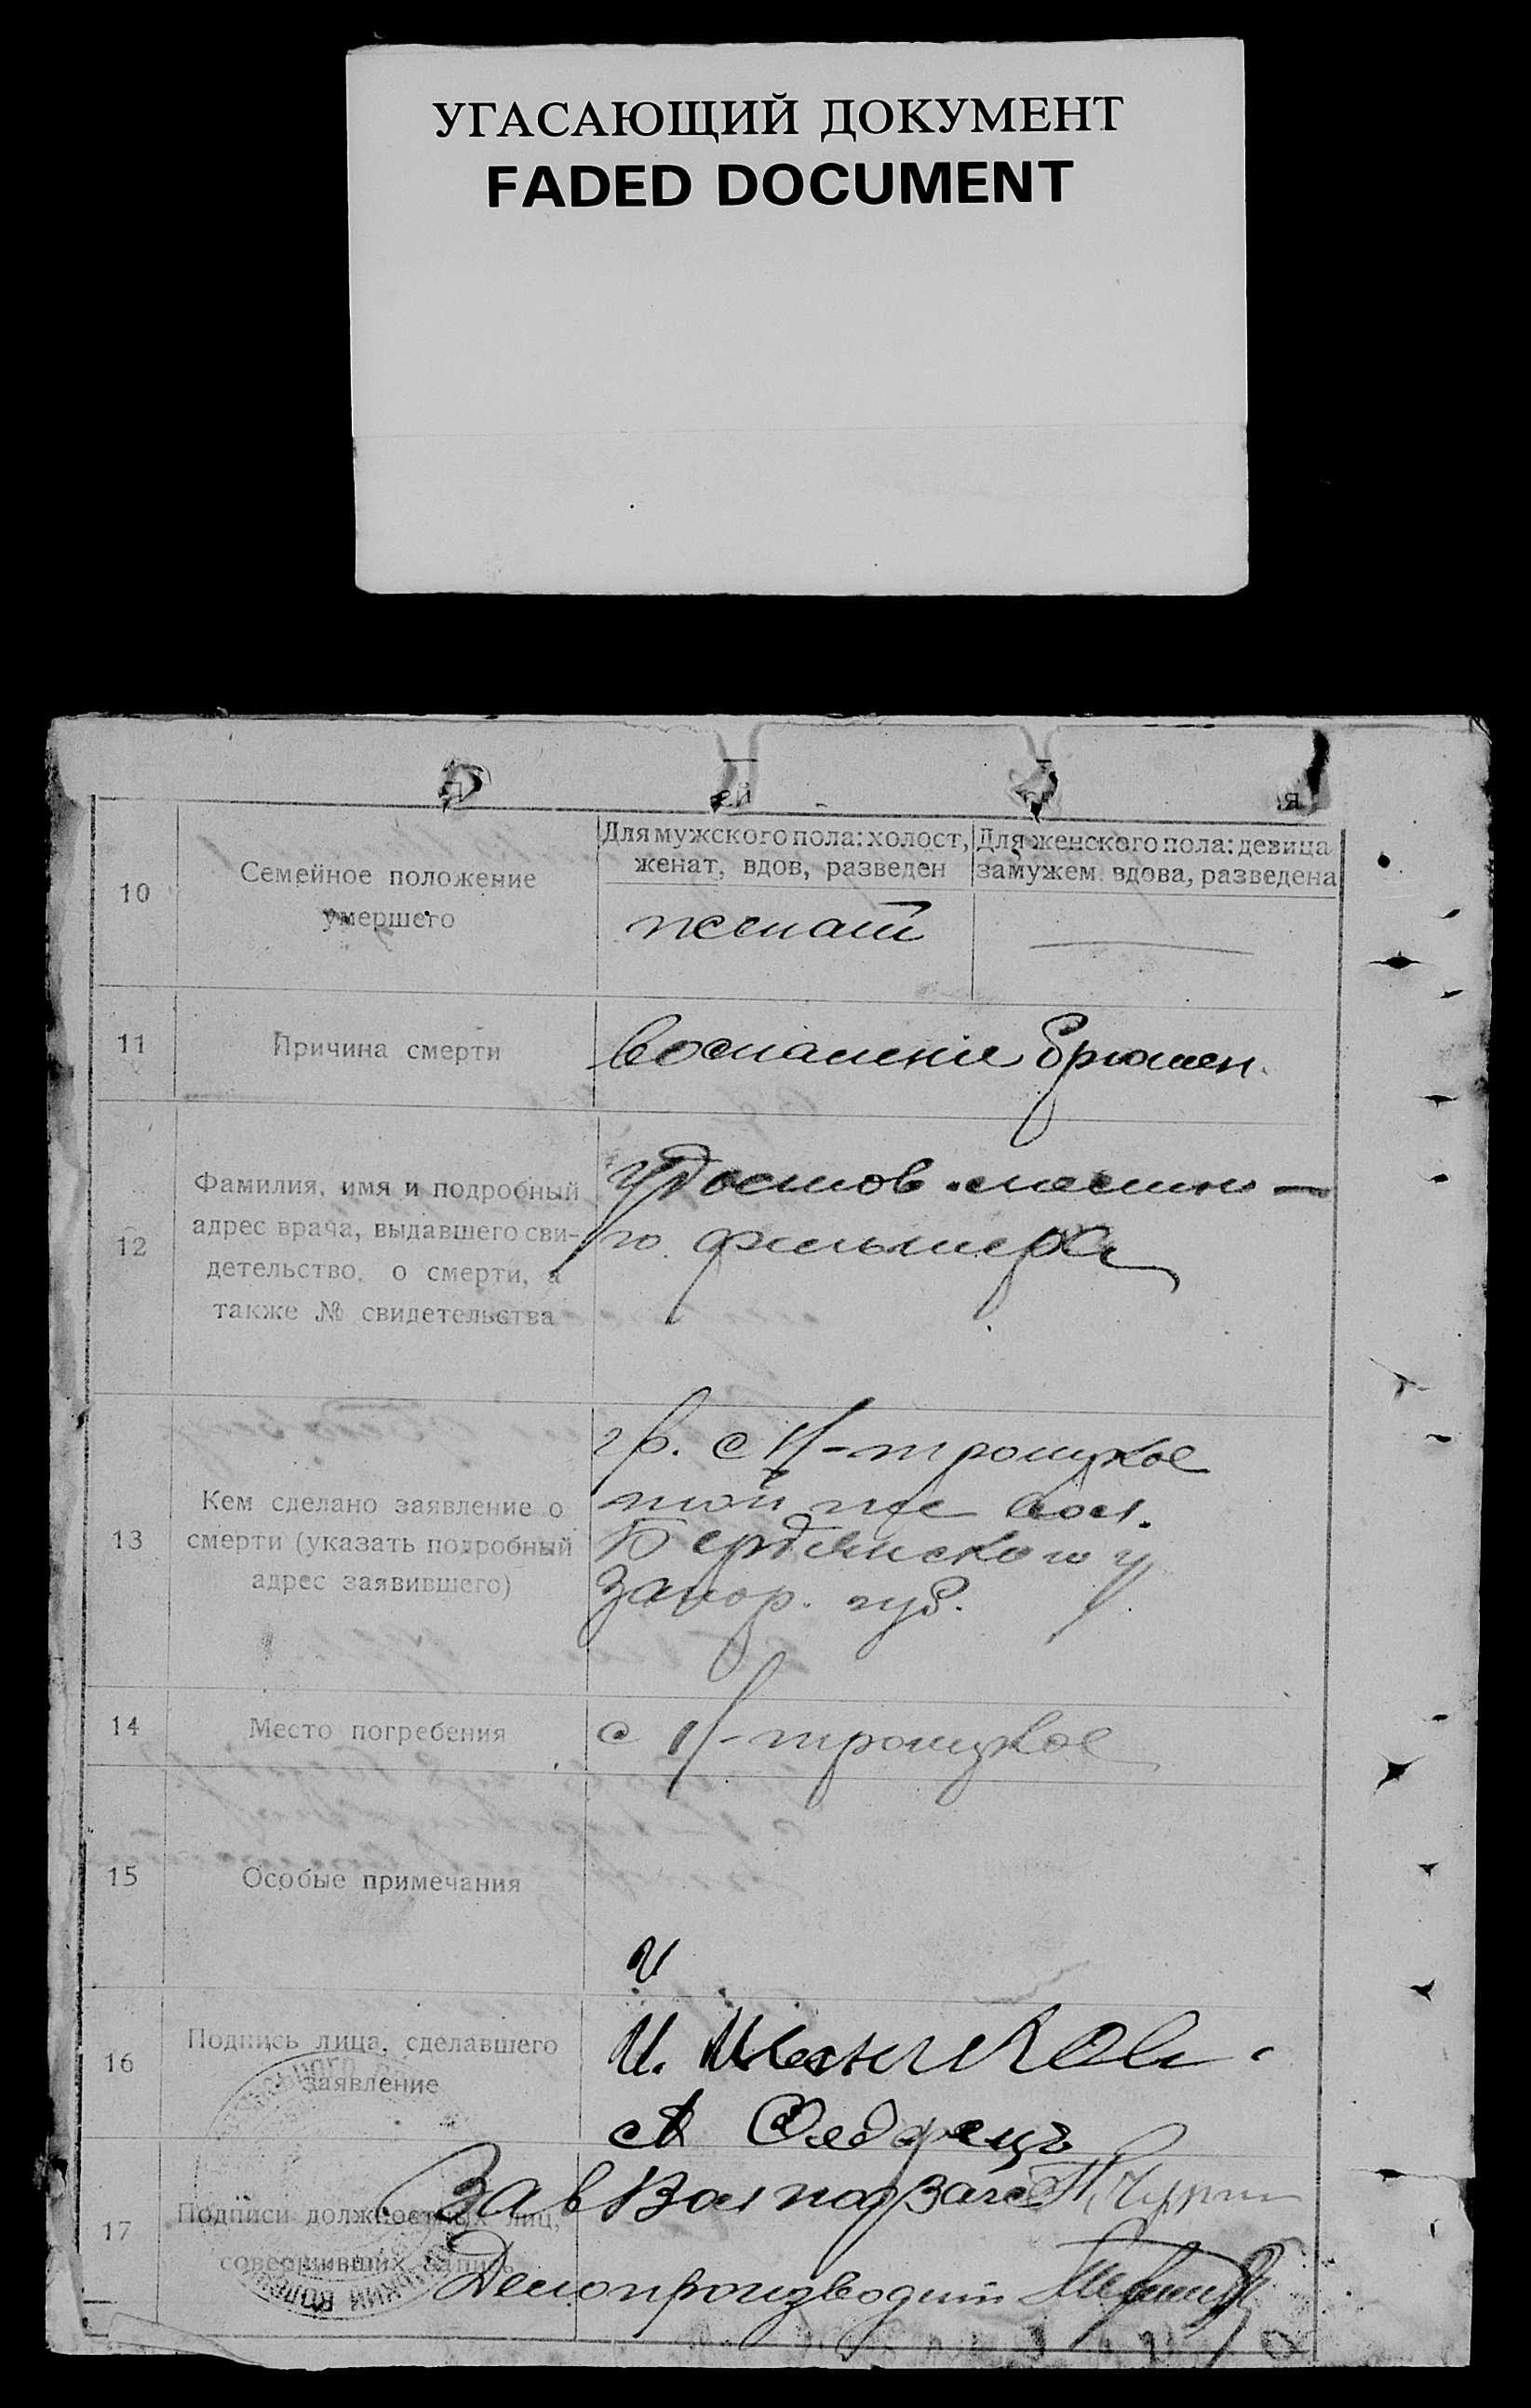 УГАСАЮЩИЙ ДОКУМЕНТ
FADED DOCUMENT
10
Семейное положение
умершего
Для мужского пола: холост,
женат, вдов, разведен
Для женского пола: девица
замужем, вдова, разведена
женат
11
Причина смерти
воспаление брюшен.
12
Фамилия, имя и подробный
адрес врача, выдавшего сви-
детельство, о смерти, а
также № свидетельства
удостов. местно-
го фельшера
13
Кем сделано заявление о
смерти (указать подробный
адрес заявившего)
гр. с Н-троицкое
той же вол.
Бердянского у
Запор. губ.
14
Место погребения
с Н-троицкое
15
Особые примечания
16
Подпись лица, сделавшего
заявление
И.
17
Подписи должностных лиц,
совершивших запись
Зав Вол подзагс
Делопроизводит